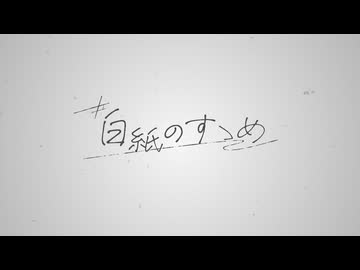 #白紙のすゝめ